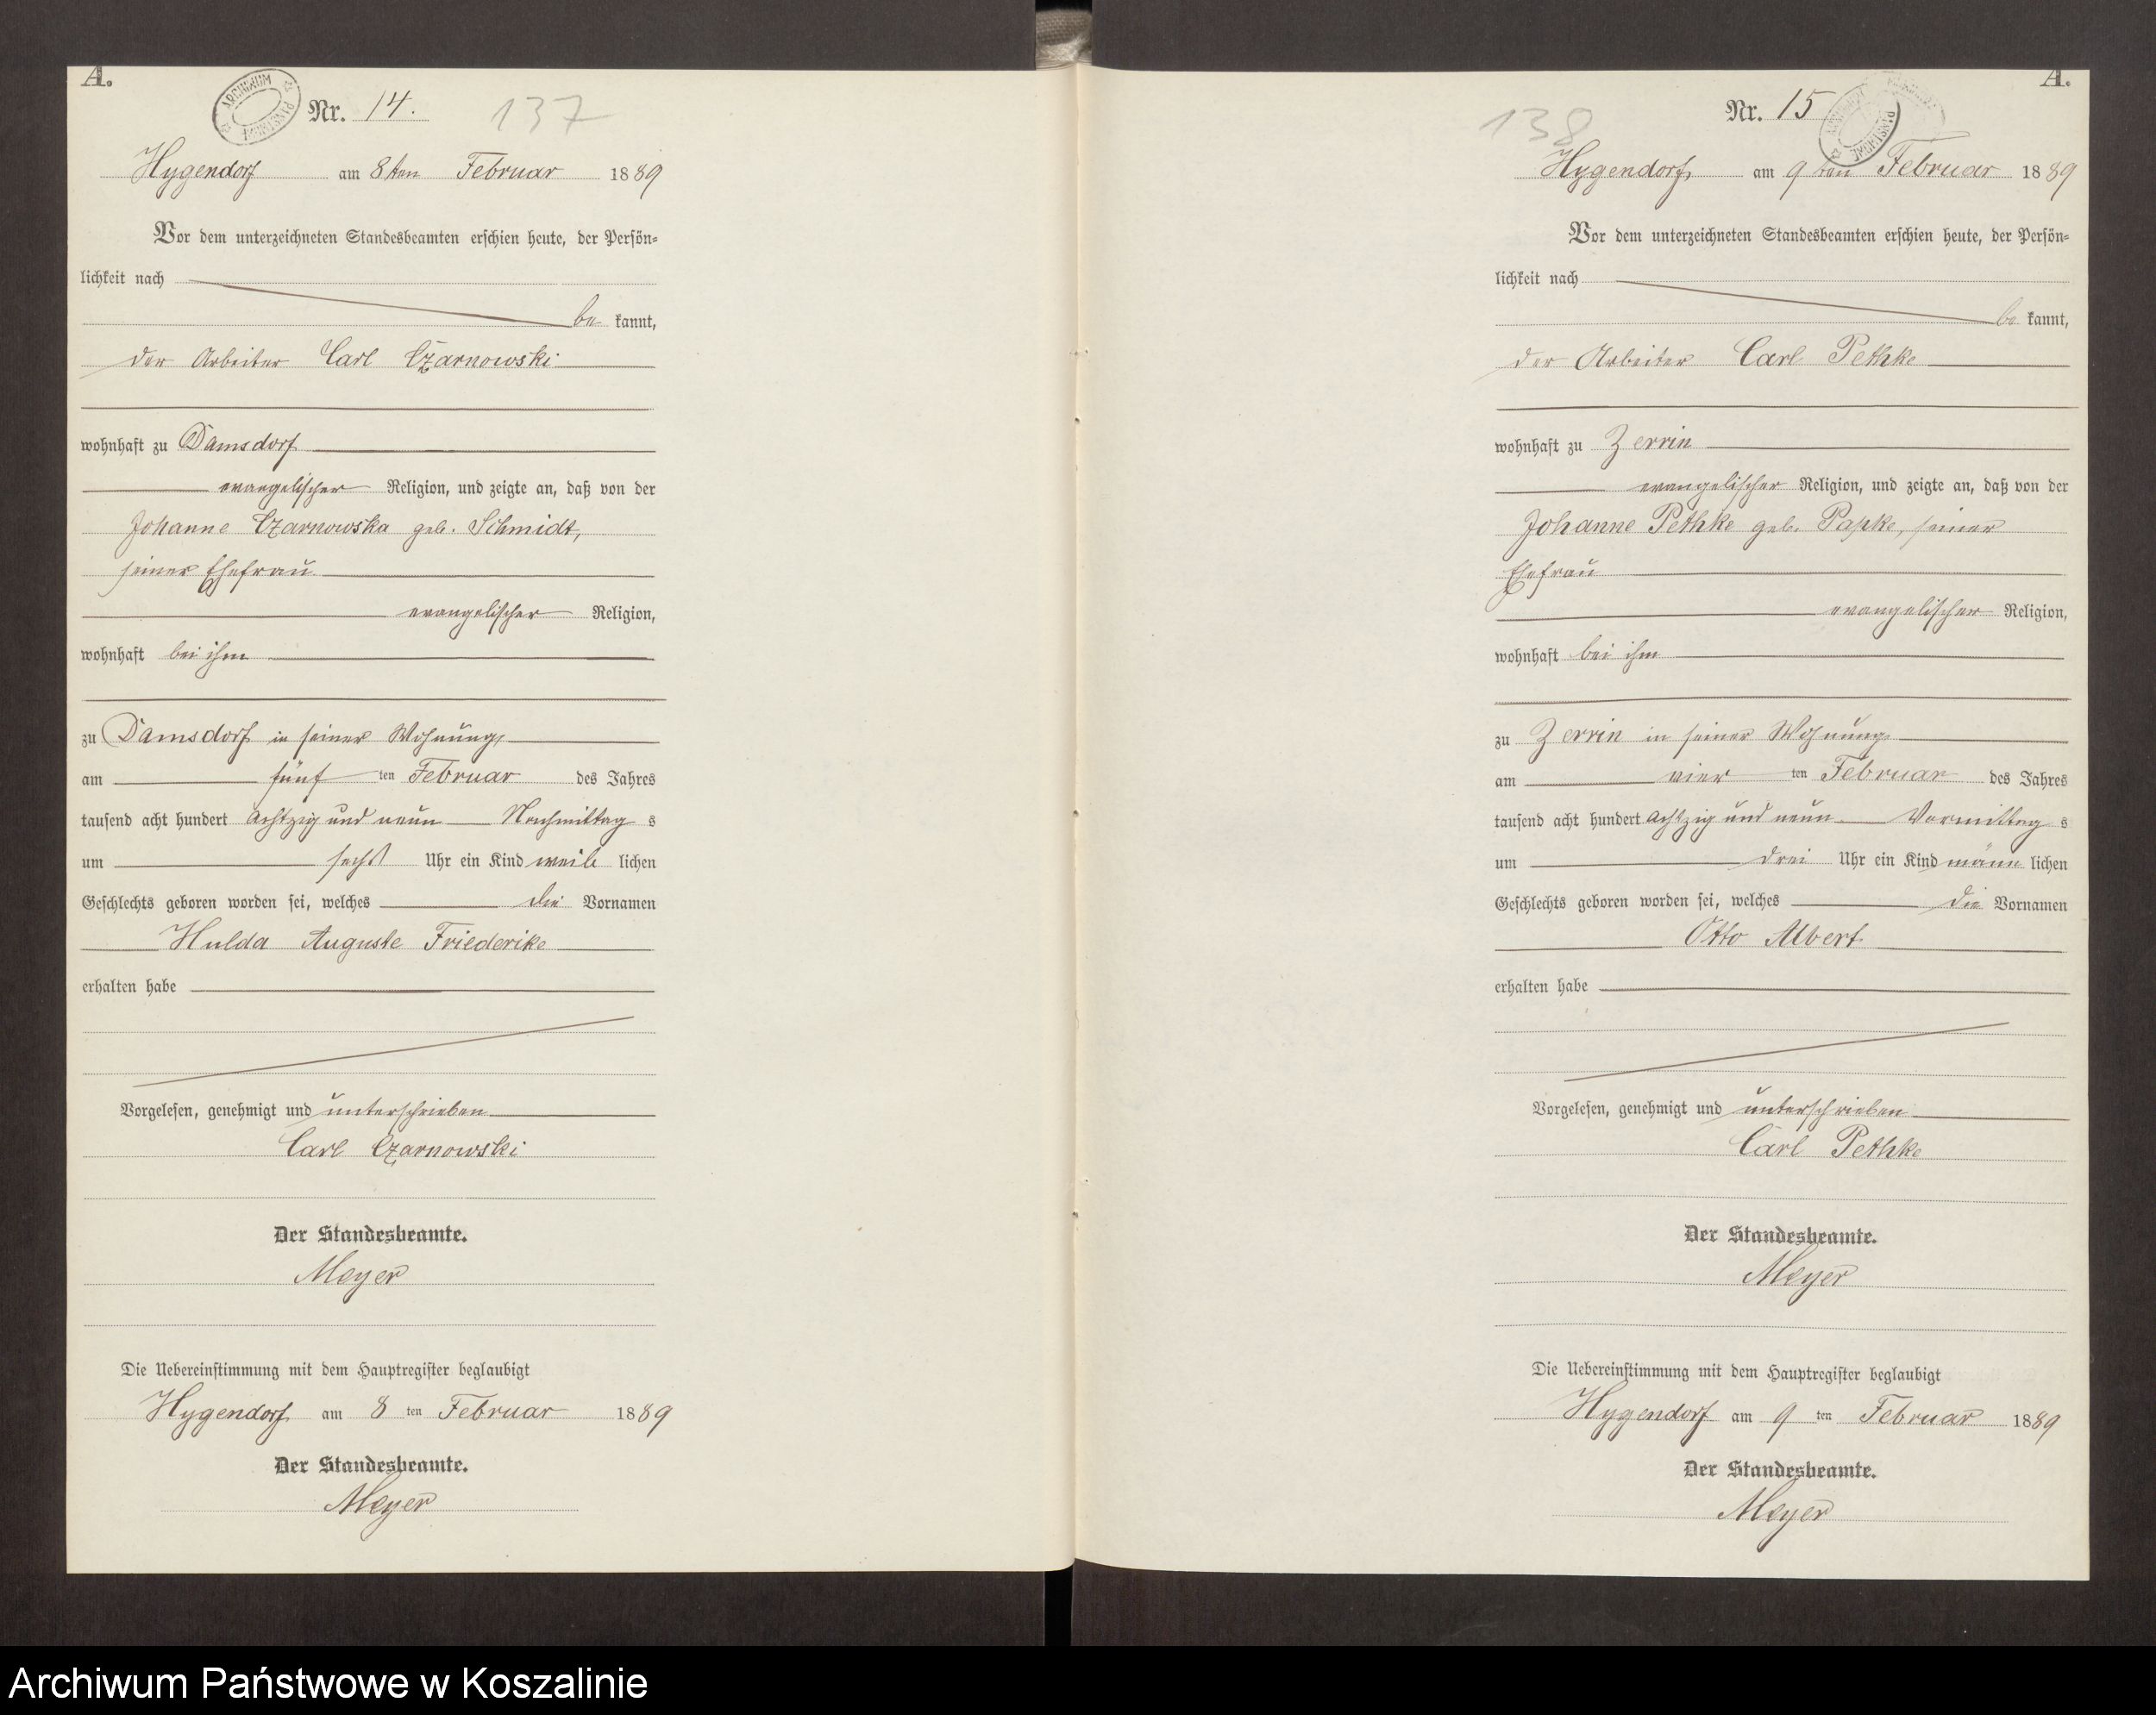 A.
ARCHIWUM PAŃSTWOWE
Nr. 14.
137
Hygendorf am 8ten Februar 1889
Vor dem unterzeichneten Standesbeamten erschien heute, der Persön=
lichkeit nach
be kannt,
der Arbeiter Carl Czarnowski
wohnhaft zu Damsdorf
evangelischer Religion, und zeigte an, daß von der
Johanne Czarnowska geb. Schmidt,
seiner Ehefrau
evangelischer Religion,
wohnhaft bei ihm
zu Damsdorf in seiner Wohnung,
am fünf ten Februar des Jahres
tausend acht hundert achtzig und neun Nachmittag s
um sechs Uhr ein Kind weib lichen
Geschlechts geboren worden sei, welches die Vornamen
Hulda Auguste Friederike
erhalten habe
Vorgelesen, genehmigt und unterschrieben
Carl Czarnowski
Der Standesbeamte.
Meyer
Die Uebereinstimmung mit dem Hauptregister beglaubigt
Hygendorf am 8 ten Februar 1889
Der Standesbeamte.
Meyer
A.
138
Nr. 15
Hygendorf, am 9 ten Februar 1889
Vor dem unterzeichneten Standesbeamten erschien heute, der Persön=
lichkeit nach
be kannt,
der Arbeiter Carl Pethke
wohnhaft zu Zerrin
evangelischer Religion, und zeigte an, daß von der
Johanne Pethke geb. Papke, seiner
Ehefrau
evangelischer Religion,
wohnhaft bei ihm
zu Zerrin in seiner Wohnung
am vier ten Februar des Jahres
tausend acht hundert achtzig und neun Vormittag s
um drei Uhr ein Kind männ lichen
Geschlechts geboren worden sei, welches die Vornamen
Otto Albert
erhalten habe
Vorgelesen, genehmigt und unterschrieben
Carl Pethke
Der Standesbeamte.
Meyer
Die Uebereinstimmung mit dem Hauptregister beglaubigt
Hygendorf am 9 ten Februar 1889
Der Standesbeamte.
Meyer
Archiwum Państwowe w Koszalinie